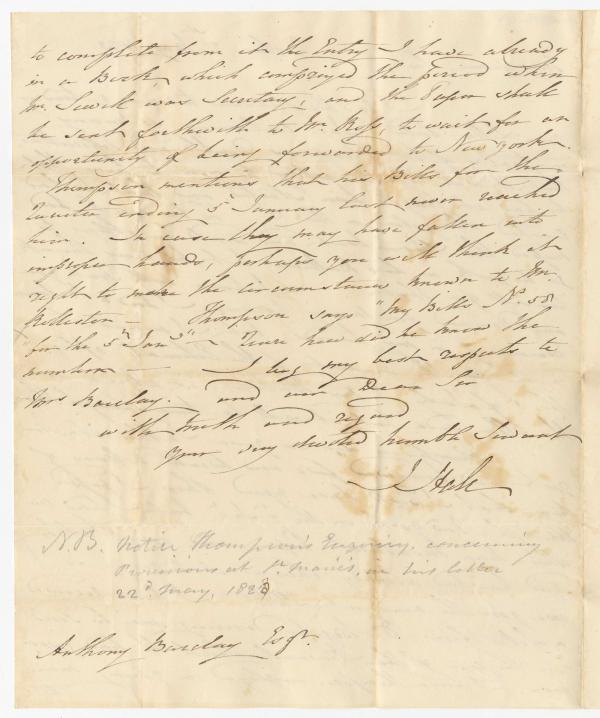 to complete from it the Entry I have already
in a Book, which comprized the period when
Mr. Sewell was Secretary, and the Paper shall
be sent forthwith to Mr. Ross, to wait for an
opportunity of being forwarded to New York.
Thompson mentions that his Bills for the
Quarter ending 5th January last never reached
him. In case they may have fallen into
improper hands, perhaps you will think it
right to make the circumstance known to Mr.
Thompson says "My Bills No. 58
for the 5th Jany" - Quere how did he know the
number — I beg my best respects to
Mrs Barclay. and am Dear Sir
with truth and regard
your very devoted humble Servant
J Hale
N.B. Notice Thompson's Enquiry, concerning
Provisions at St. Marie's, in his letter
22d. May, 182
Anthony Barclay Esqr.